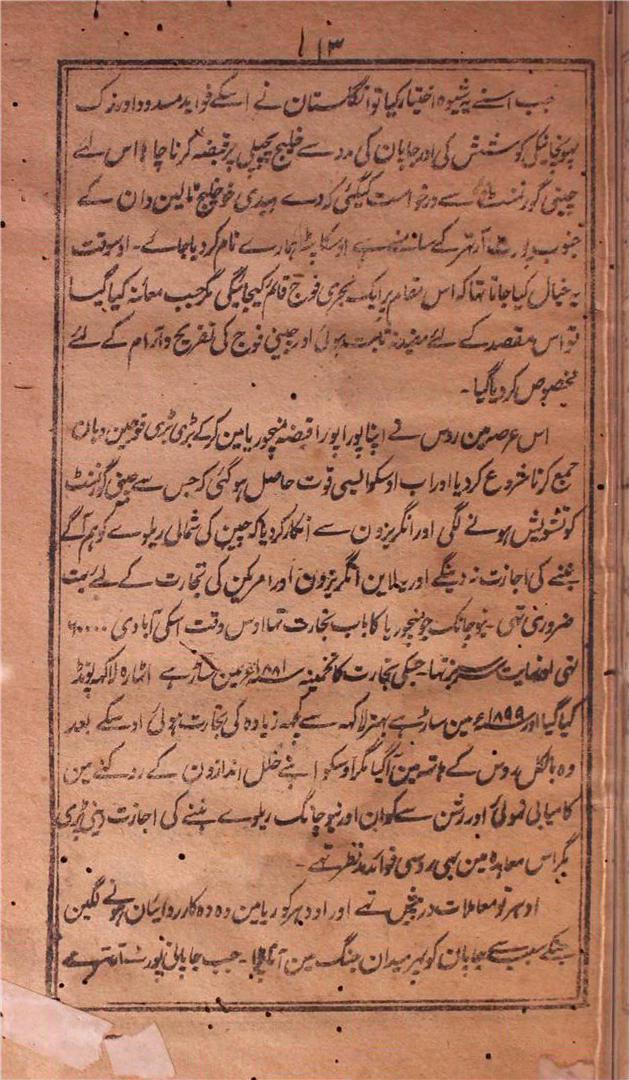 ۱۳
جب اسنے یہ شیوہ اختیار کیا تو انگلستان نے اسکے فواید مسدود اور زک
پہونچانیکی کوشش کی اور جاپان کی مدد سے خلیج پیچیلی پر قبضہ کرنا چاہا اس لئے
چینی گورنمنٹ سے درخواست کیگئی کہ دے ہیدی خو خلیج تالین وان کے
جنوب پورٹ آرتہر کے سامنے ہے اوسکا پٹہ ہمارے نام کر دیا جائے۔ اوسوقت
یہ خیال کیا جاتا تہا کہ اس مقام پر ایک بحری فوج قائم کیجائیگی مگر جب معائنہ کیا گیا
تو اس مقصد کے لئے مفید نہ ثابت ہوئی اور چینی فوج کی تفریح و آرام کے لئے
مخصوص کر دیا گیا۔
اس عرصہ مین روس نے اپنا پورا پورا قبضہ منچوریا مین کر کے بڑی بڑی فوجین وہان
جمع کرنا شروع کر دیا اور اب اوسکو ایسی قوت حاصل ہو گئی کہ جس سے چینی گورنمنٹ
کو تشویش ہونے لگی اور انگریزون سے انکار کر دیا کہ چین کی شمالی ریلوے کو ہم آگے
بننے کی اجازت نہ دینگے اور یہ لاین انگریزون اور امریکن کی تجارت کے لئے بہت
ضروری تہی۔ نیوچانگ جو منچوریا کا باب تجارت تہا اوس وقت اسکی آبادی ۶۰۰۰۰
تہی اور نہایت سرسبز تہا۔ جسکی تجارت کا تخمینہ ۱۸۸۱ء مین ساڑہے اٹہارہ لاکہہ پونڈ
کیا گیا اور ۱۸۹۹ء مین ساڑہے بہتر لاکہہ سے کچہہ زیادہ کی تجارت ہوئی اوسکے بعد
وہ بالکل روس کے ہاتہہ مین آگیا مگر اوسکو اپنے خلل اندازون کے روکنے مین
کامیابی نہوئی اور رشن سے کوان اور نیوچانگ ریلوے بننے کی اجازت دینی پڑی
مگر اس معاہدہ مین بہی روسی فوائد مد نظر تہے۔
اودہر تو معاملات درپیش تہے اور اودہر کوریا مین وہ وہ کارروایان ہونے لگین
جنکے سبب سے جاپان کو پہر میدان جنگ مین آنا پڑا۔ جب جاپانی پورٹ آرتہر سے